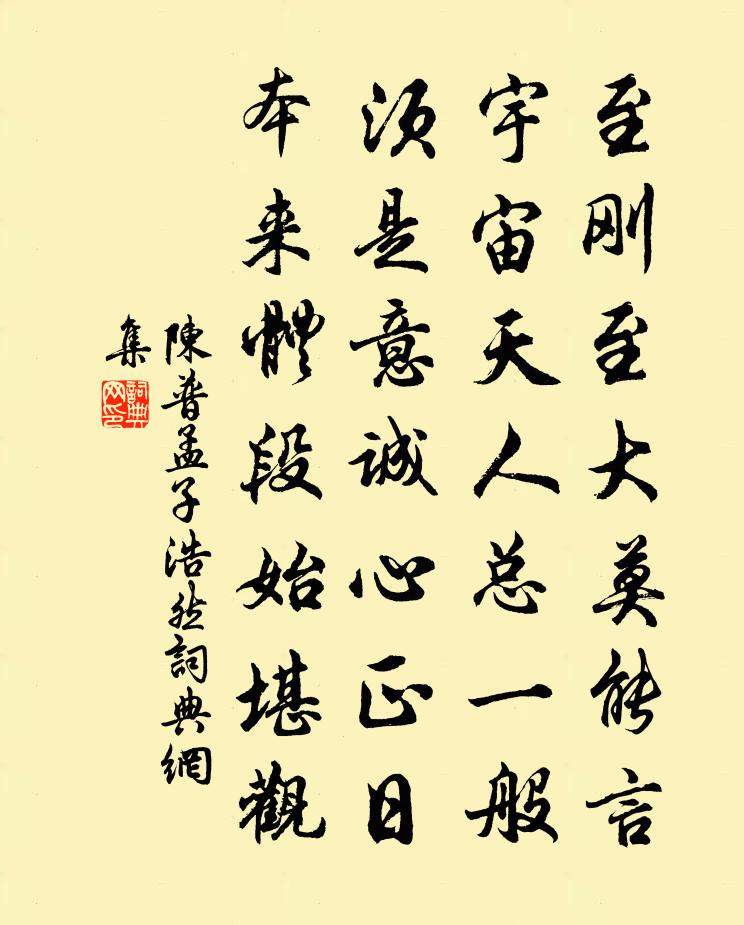 至刚至大莫能言
宇宙天人总一般
须是意诚心正日
本来體段始堪觀
陳普孟子浩然詞典網
集
詞典
网印